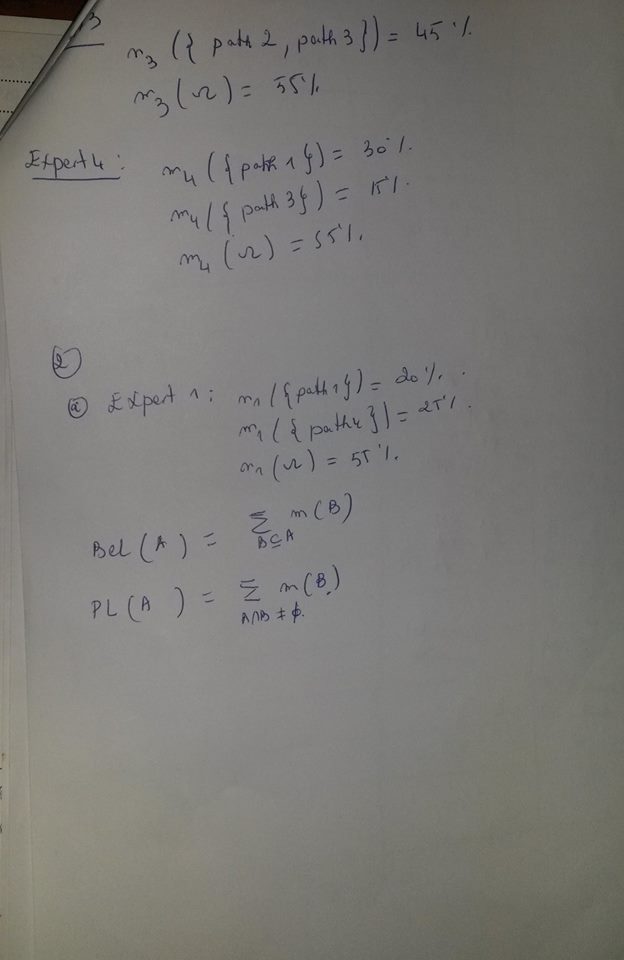 3
m3 ({ path 2, path 3 }) = 45 %
m3 (Ω) = 55 %
Expert 4 : m4 ({ path 1 }) = 30 %.
m4 ({ path 3 }) = 15 %.
m4 (Ω) = 55 %.
②
ⓐ Expert 1 : m1 ({ path 1 }) = 20 %.
m1 ({ path 4 }) = 25 %.
m1 (Ω) = 55 %.
Bel (A) = Σ m (B)
B ⊆ A
PL (A) = Σ m (B).
A∩B ≠ ϕ.